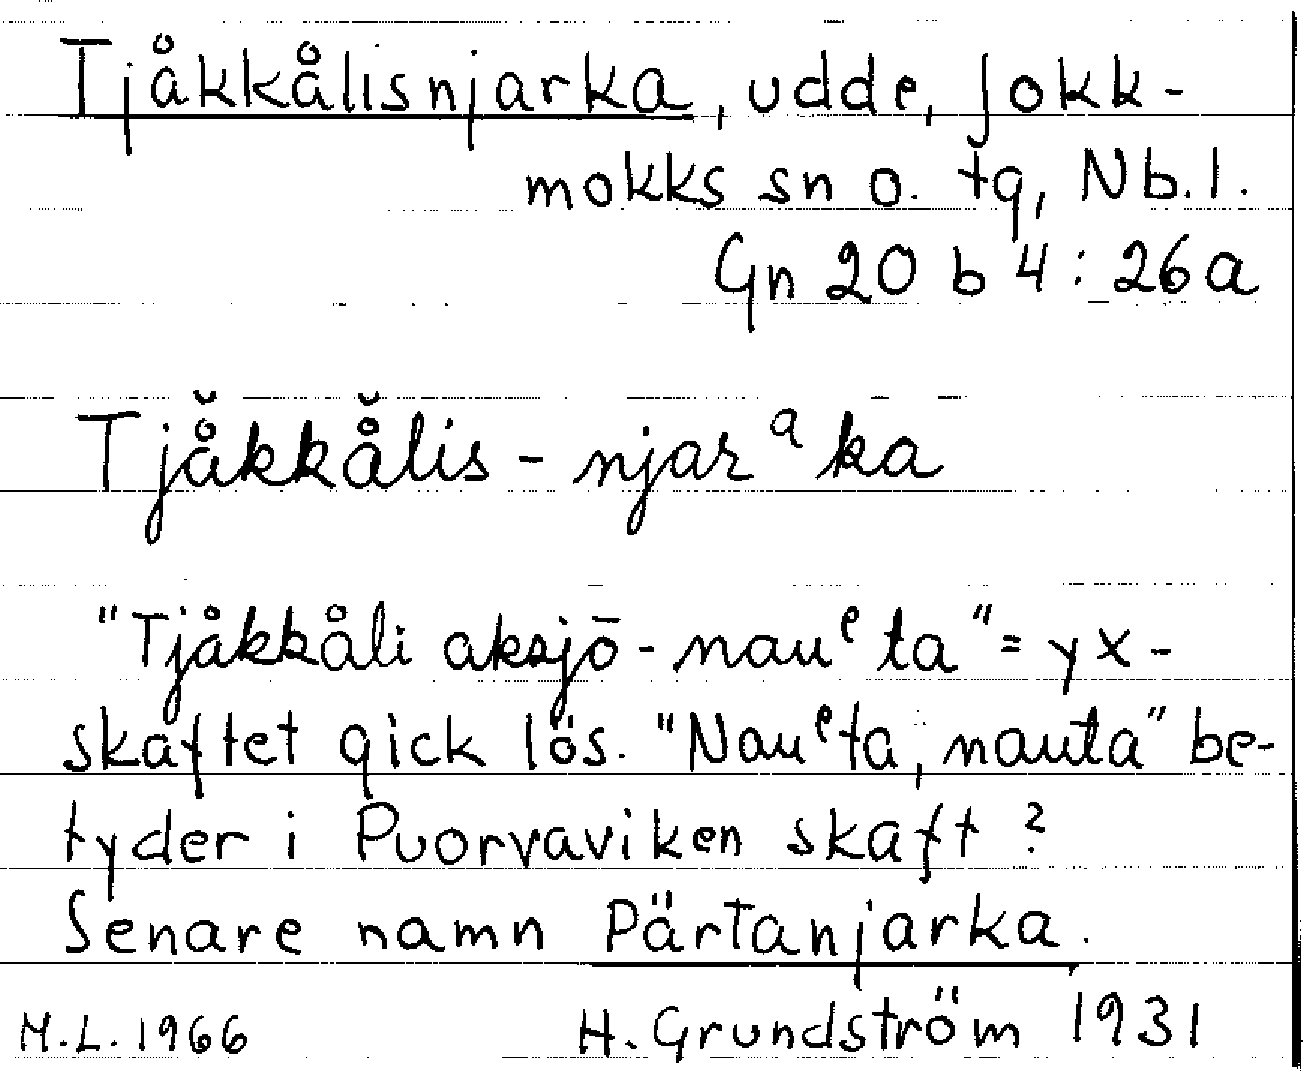 Tjåkkålisnjarka, udde, Jokk-
mokks sn o. tg, Nb. l.
Gn 20 b 4 : 26a
Tjå̆kkå̆lis - njarᵃka
"Tjåkkåli aksjō - nauᵉta" = yx-
skaftet gick lös. "Nauᵉta, nauta" be-
tyder i Puorvaviken skaft?
Senare namn Pärtanjarka.
M.L. 1966 H. Grundström 1931